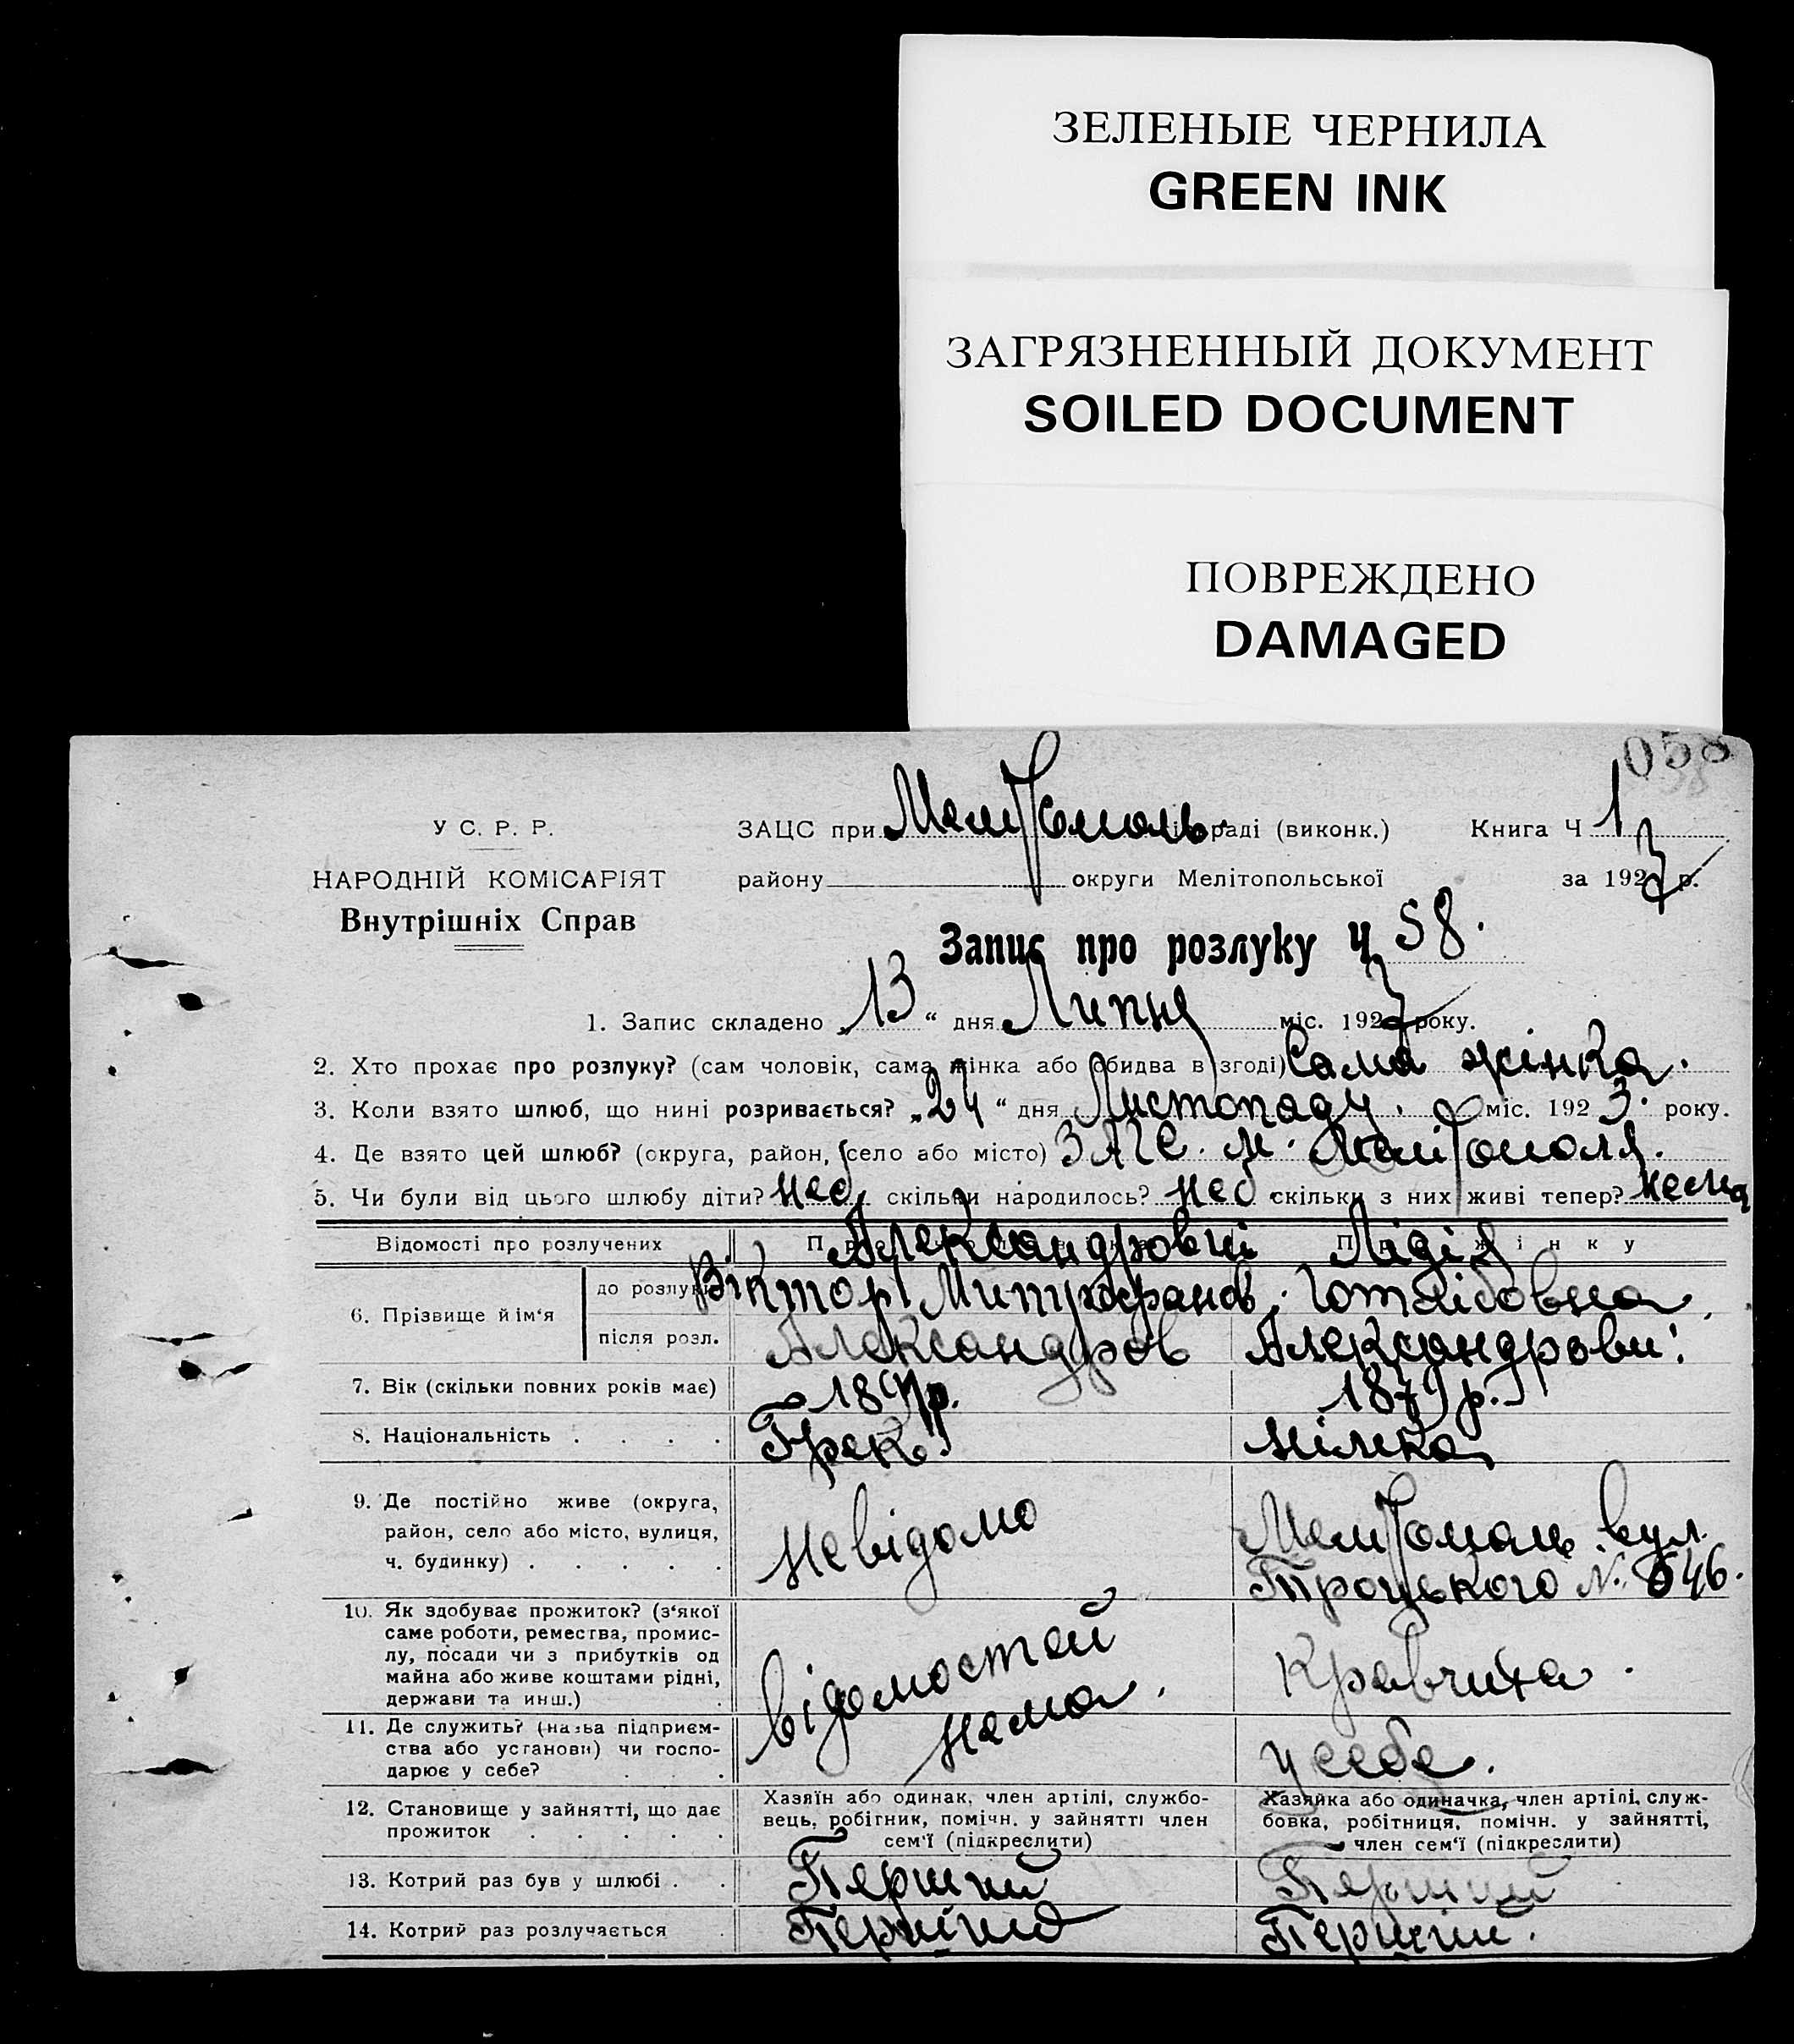 ЗЕЛЕНЫЕ ЧЕРНИЛА
GREEN INK
ЗАГРЯЗНЕННЫЙ ДОКУМЕНТ
SOILED DOCUMENT
ПОВРЕЖДЕНО
DAMAGED
058
У С. Р. Р.
НАРОДНІЙ КОМІСАРІЯТ
Внутрішніх Справ
ЗАЦС при Мелітополь раді (виконк.) Книга Ч 1
району округи Мелітопольської за 1927 р.
Запис про розлуку Ч 58.
1. Запис складено „13“ дня Липня міс. 1927 року.
2. Хто прохає про розлуку? (сам чоловік, сама жінка або обидва в згоді) Сама жінка.
3. Коли взято шлюб, що нині розривається? „24“ дня Листопаду. міс. 1923. року.
4. Де взято цей шлюб? (округа, район, село або місто) ЗАГС. м. Мелітополя.
5. Чи були від цього шлюбу діти? скільки народилось? скільки з них живі тепер? нема
Відомості про розлучених
Александрови Лідія
6. Прізвище й ім'я
до розлуки Віктор Готлібовна
після розл. Александров Александрови.
7. Вік (скільки повних років має) 1879 р.
8. Національність . . . . Грек. німка
9. Де постійно живе (округа, район, село або місто, вулиця, ч. будинку) . . . . .
Невідомо
Мелітополь вул.
Троцького №
10. Як здобуває прожиток? (з'якої саме роботи, ремества, промислу, посади чи з прибутків од майна або живе коштами рідні, держави та инш.)
відомостей
нема.
Кравчиха.
11. Де служить? (назва підприємства або установи) чи господарює у себе?
у себе.
12. Становище у зайнятті, що дає прожиток . . . . .
Хазяїн або одинак, член артілі, службовець, робітник, помічн. у зайнятті член сем'ї (підкреслити)
Хазяйка або одиначка, член артілі, службовка, робітниця, помічн. у зайнятті, член сем'ї (підкреслити)
13. Котрий раз був у шлюбі . . Перший Перший
14. Котрий раз розлучається . Перший Перший.